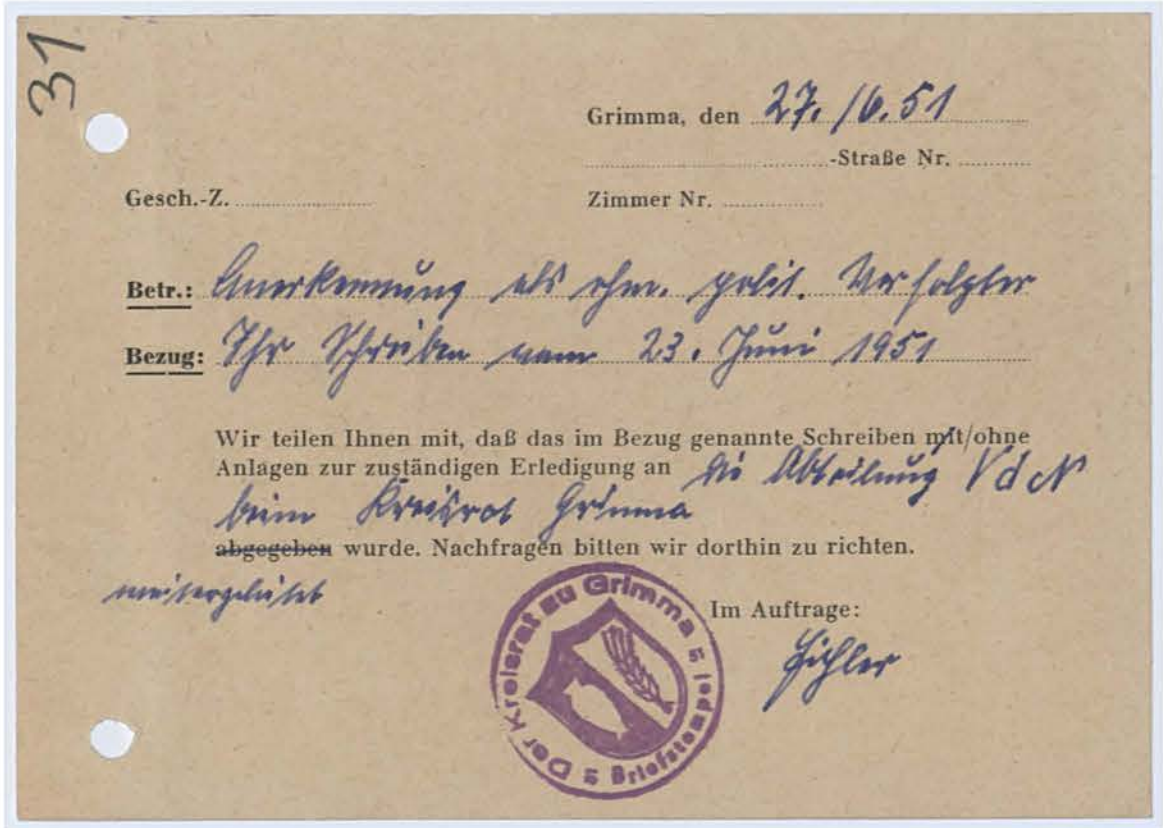 31
Grimma, den 27. /6. 51
-Straße Nr.
Gesch.-Z.
Zimmer Nr.
Betr.: Anerkennung als ehm. polit. Verfolgter
Bezug: Ihr Schreiben vom 23. Juni 1951
Wir teilen Ihnen mit, daß das im Bezug genannte Schreiben mit/ohne
Anlagen zur zuständigen Erledigung an die Abteilung VdN
beim Kreisrat Grimma
abgegeben wurde. Nachfragen bitten wir dorthin zu richten.
weitergeleitet
Im Auftrage:
Der Kreisrat zu Grimma
Briefstempel